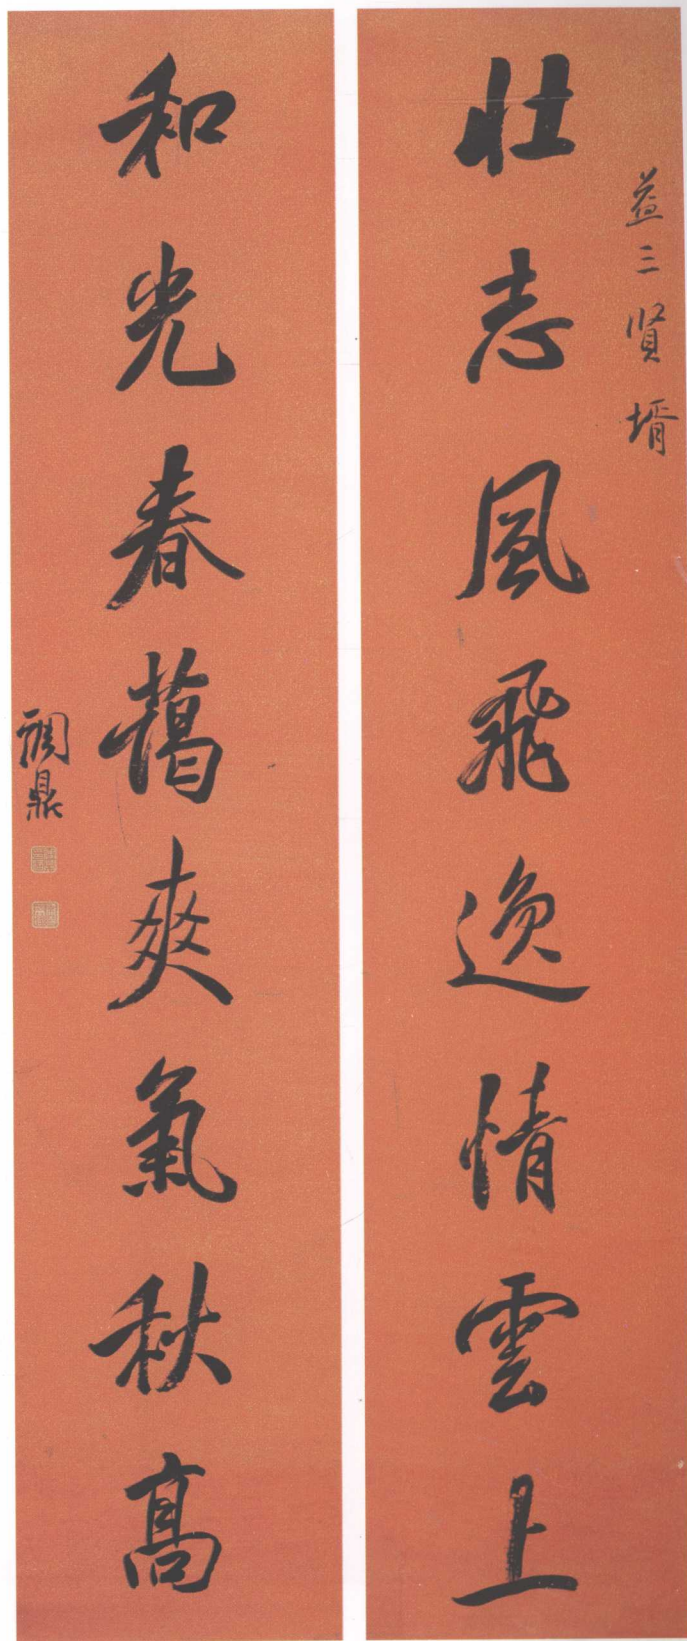 益三賢壻
壯志風飛逸情雲上
和光春藹爽氣秋高
調鼎